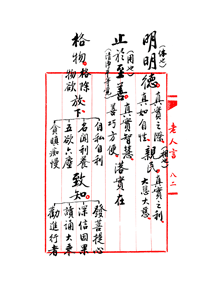 老人言 八二
(体也)
明明德 真實之際 真如自性
(相也)
親民 真實之利 大慈大悲
(用也)
止於至善 真實智慧 善巧方便 落實在
格物 格除物欲 放下
自私自利
名聞利養
五欲六塵
貪瞋痴慢
致知
發菩提心
深信因果
讀誦大乘
勸進行者